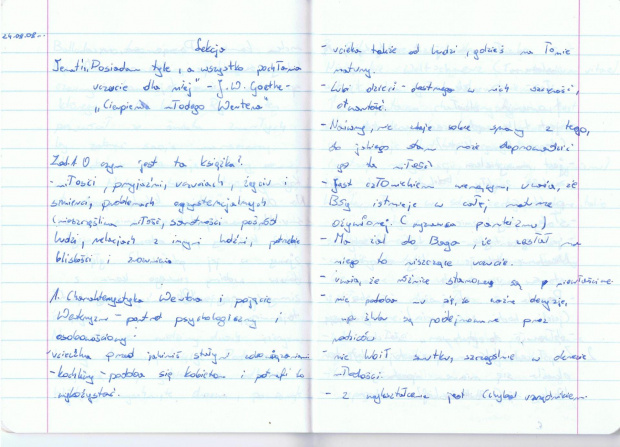 24.09.08r.
Lekcja
Temat: „Posiadam tyle, a wszystko pochłania
uczucie dla niej" - J.W. Goethe -
„Cierpienia młodego Wertera"
Zad.1 O czym jest ta książka?
- miłości, przyjaźni, uczuciach, życiu i
śmierci, problemach egzystencjalnych
(nieszczęśliwa miłość, samotności pośród
ludzi, relacjach z innymi ludźmi, potrzebie
bliskości i
1. Charakterystyka Wertera i pojęcie
Weteryzm - portret psychologiczny i
osobowościowy:
- ucieczka przed jakimiś stałymi zobowiązaniami
- kochliwy - podoba się kobietom i potrafi to
wykorzystać.
- ucieka także od ludzi, gdzieś na łonie
natury.
- lubi dzieci - dostrzega w nich szczerość,
otwartość.
- Naiwny, nie zdaje sobie sprawy z tego,
do jakiego stanu może doprowadzić
go ta miłość
- Jest człowiekiem wierzącym, uważa, że
Bóg istnieje w całej naturze
ożywionej. (wyznawca panteizmu)
- Ma żal do Boga, że zesłał na
niego to niszczące uczucie.
- uważa, że różnice stanowe są
- nie podoba mu się, że ważne decyzje,
np. ślub są podejmowane przez
rodziców
- nie lubił smutku, szczególnie w okresie
młodości.
- z wykształcenia jest (chyba) urzędnikiem.